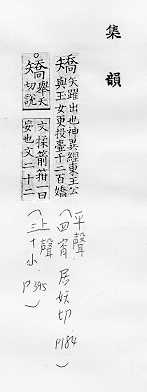 集韻
矯矢躍出也神異經東王公
與玉女更投壺千二百矯
矯舉夭切說
文揉箭箝一曰
妄也文二十二
(平聲
四宵 居妖切 P184)
(上聲
三十小 P395)